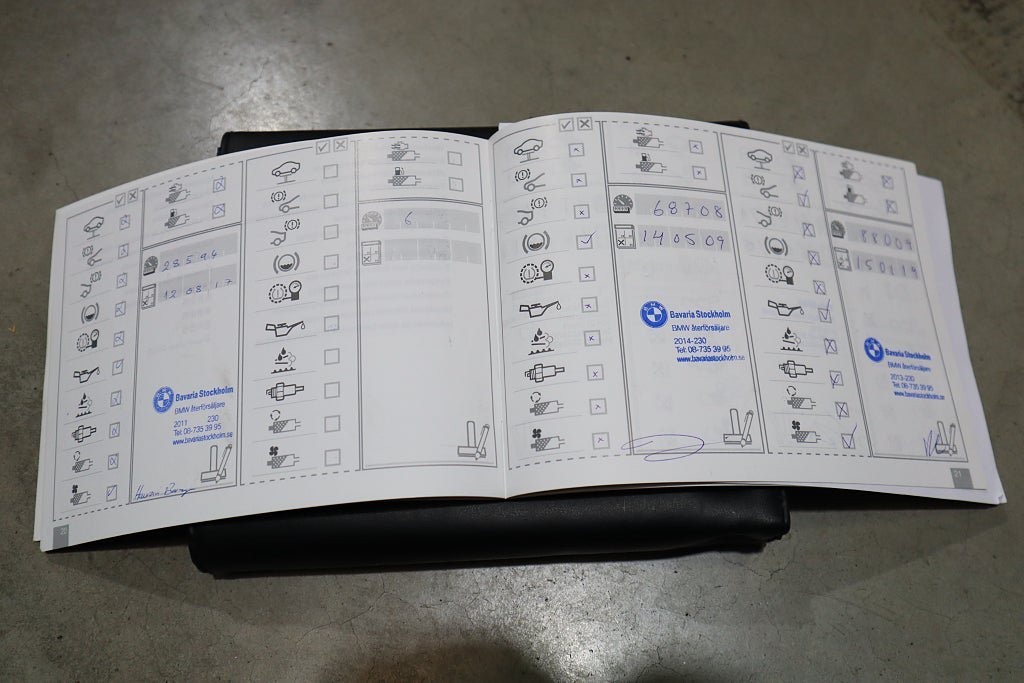 28594
120817
BMW
Bavaria Stockholm
BMW återförsäljare
2011 230
Tel: 08-735 39 95
www.bavariastockholm.se
22
6
68708
140509
BMW
Bavaria Stockholm
BMW återförsäljare
2014-230
Tel: 08-735 39 95
www.bavariastockholm.se
88004
150119
BMW
Bavaria Stockholm
BMW återförsäljare
2013-230
Tel: 08-735 39 95
www.bavariastockholm.se
21